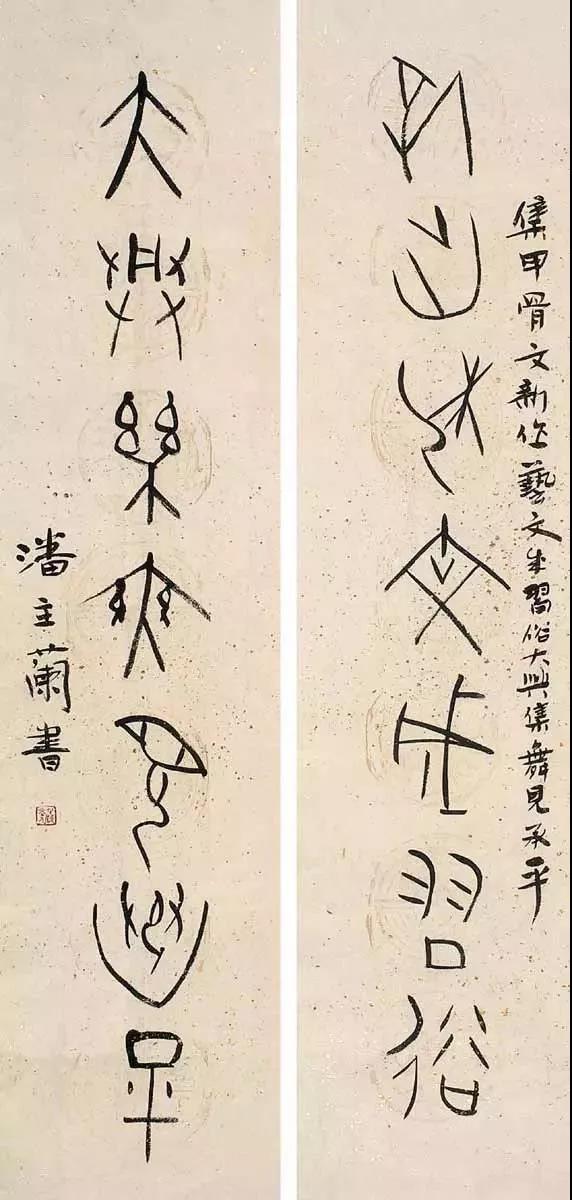 集甲骨文新作藝文成習俗大興樂舞見承平
新作藝文成習俗
大興樂舞見承平
潘主蘭書